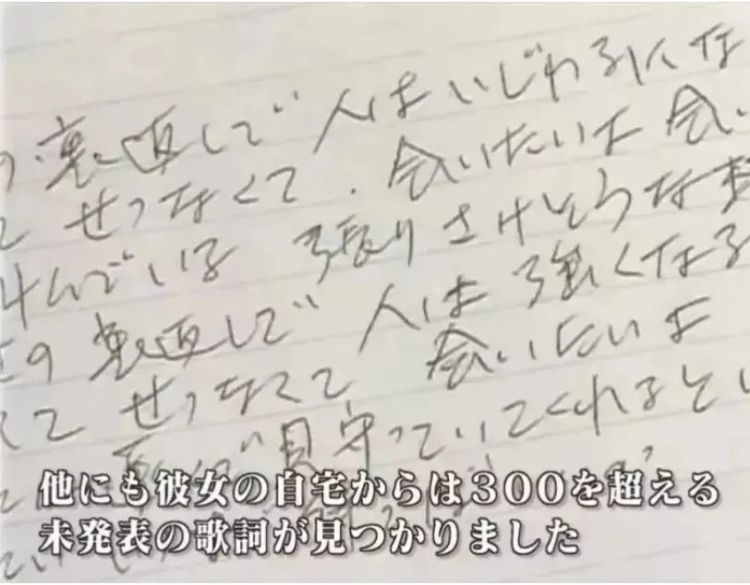 の裏返しで 人はいじわるにな
て せつなくて 会いたいよ 会い
んでいる 張りさけそうな
の裏返しで 人は強くなる
て せつなくて 会いたいよ
で見守っていてくれると
他にも彼女の自宅からは300を超える
未発表の歌詞が見つかりました